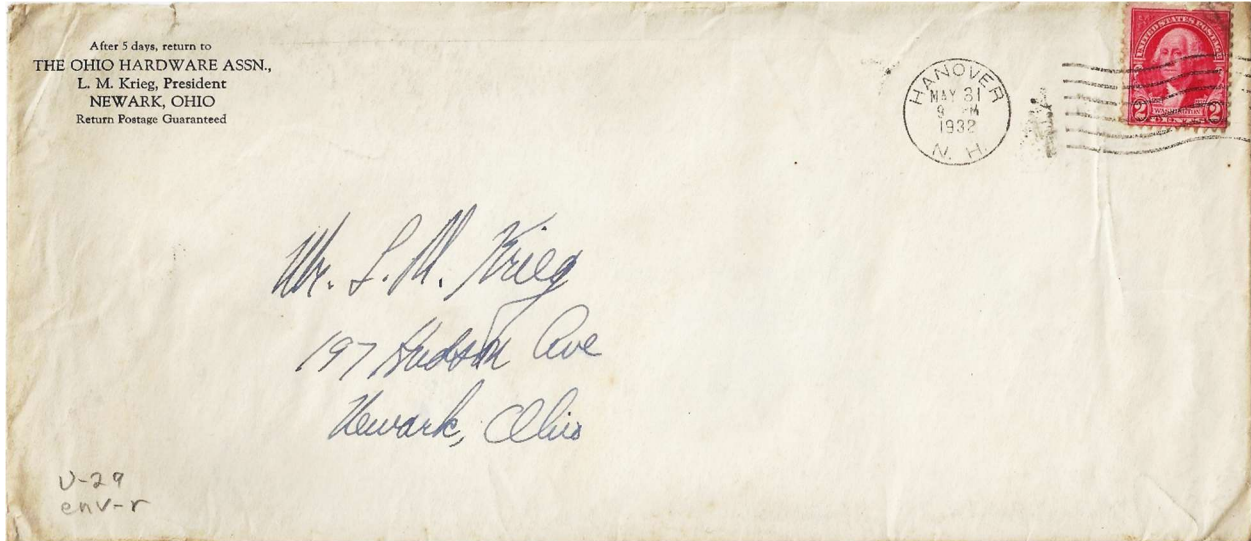 After 5 days, return to
THE OHIO HARDWARE ASSN.,
L. M. Krieg, President
NEWARK, OHIO
Return Postage Guaranteed
HANOVER
MAY 31
9 PM
1932
N. H.
UNITED STATES POSTAGE
2 WASHINGTON 2
CENTS
Mr. L. M. Krieg
197 Hudson Ave
Newark, Ohio
V-29
env-r